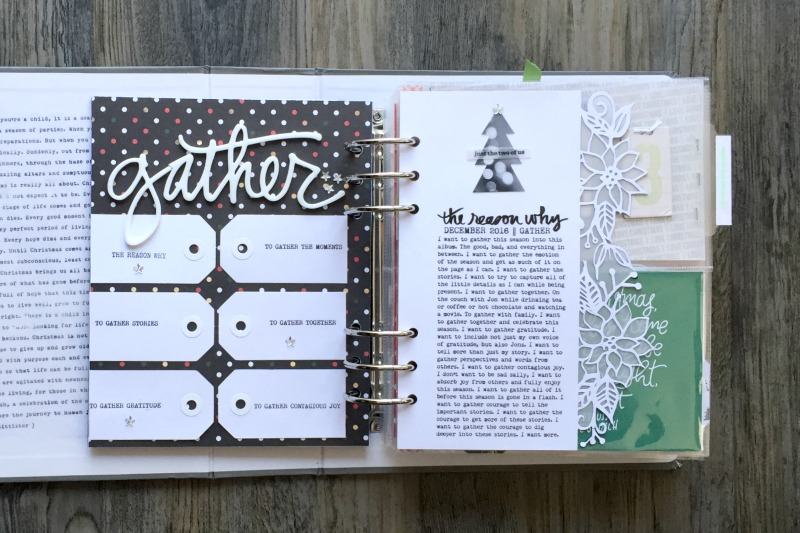 you're a child, it is a
season of parties. When
preparations. But when you
Suddenly, out from
through the haze of
altars and sumptuous
is really all about.
not expect it to be.
stage of life comes and
dies. Every good moment
perfect period of living
Every hope dies and every
Until Christmas comes
most subconscious, least
Christmas brings us all
of what has gone before
full of hope that this
to live well, grow to
There is a child in
looking for life
beckons. Christmas is not
to give up and grow old
with purpose each and
so that life can be full
are agitated with
living, for those in
a celebration of the
the journey to human
gather
THE REASON WHY
TO GATHER THE MOMENTS
TO GATHER STORIES
TO GATHER TOGETHER
TO GATHER GRATITUDE
TO GATHER CONTAGIOUS JOY
just the two of us
the reason why
DECEMBER 2016 || GATHER
I want to gather this season into this
album. The good, bad, and everything in
between. I want to gather the emotion
of the season and get as much of it on
the page as I can. I want to gather the
stories. I want to try to capture all of
the little details as I can while being
present. I want to gather together. On
the couch with Jon while drinking tea
or coffee or hot chocolate and watching
a movie. To gather with family. I want
to gather together and celebrate this
season. I want to gather gratitude. I
want to include not just my own voice
of gratitude, but also Jons. I want to
tell more than just my story. I want to
gather perspectives and words from
others. I want to gather contagious joy.
I don't want to be sad sally, I want to
absorb joy from others and fully enjoy
this season. I want to gather all of it
before this season is gone in a flash. I
want to gather courage to tell the
important stories. I want to gather the
courage to get more of these stories. I
want to gather the courage to dig
deeper into these stories. I want more.
3